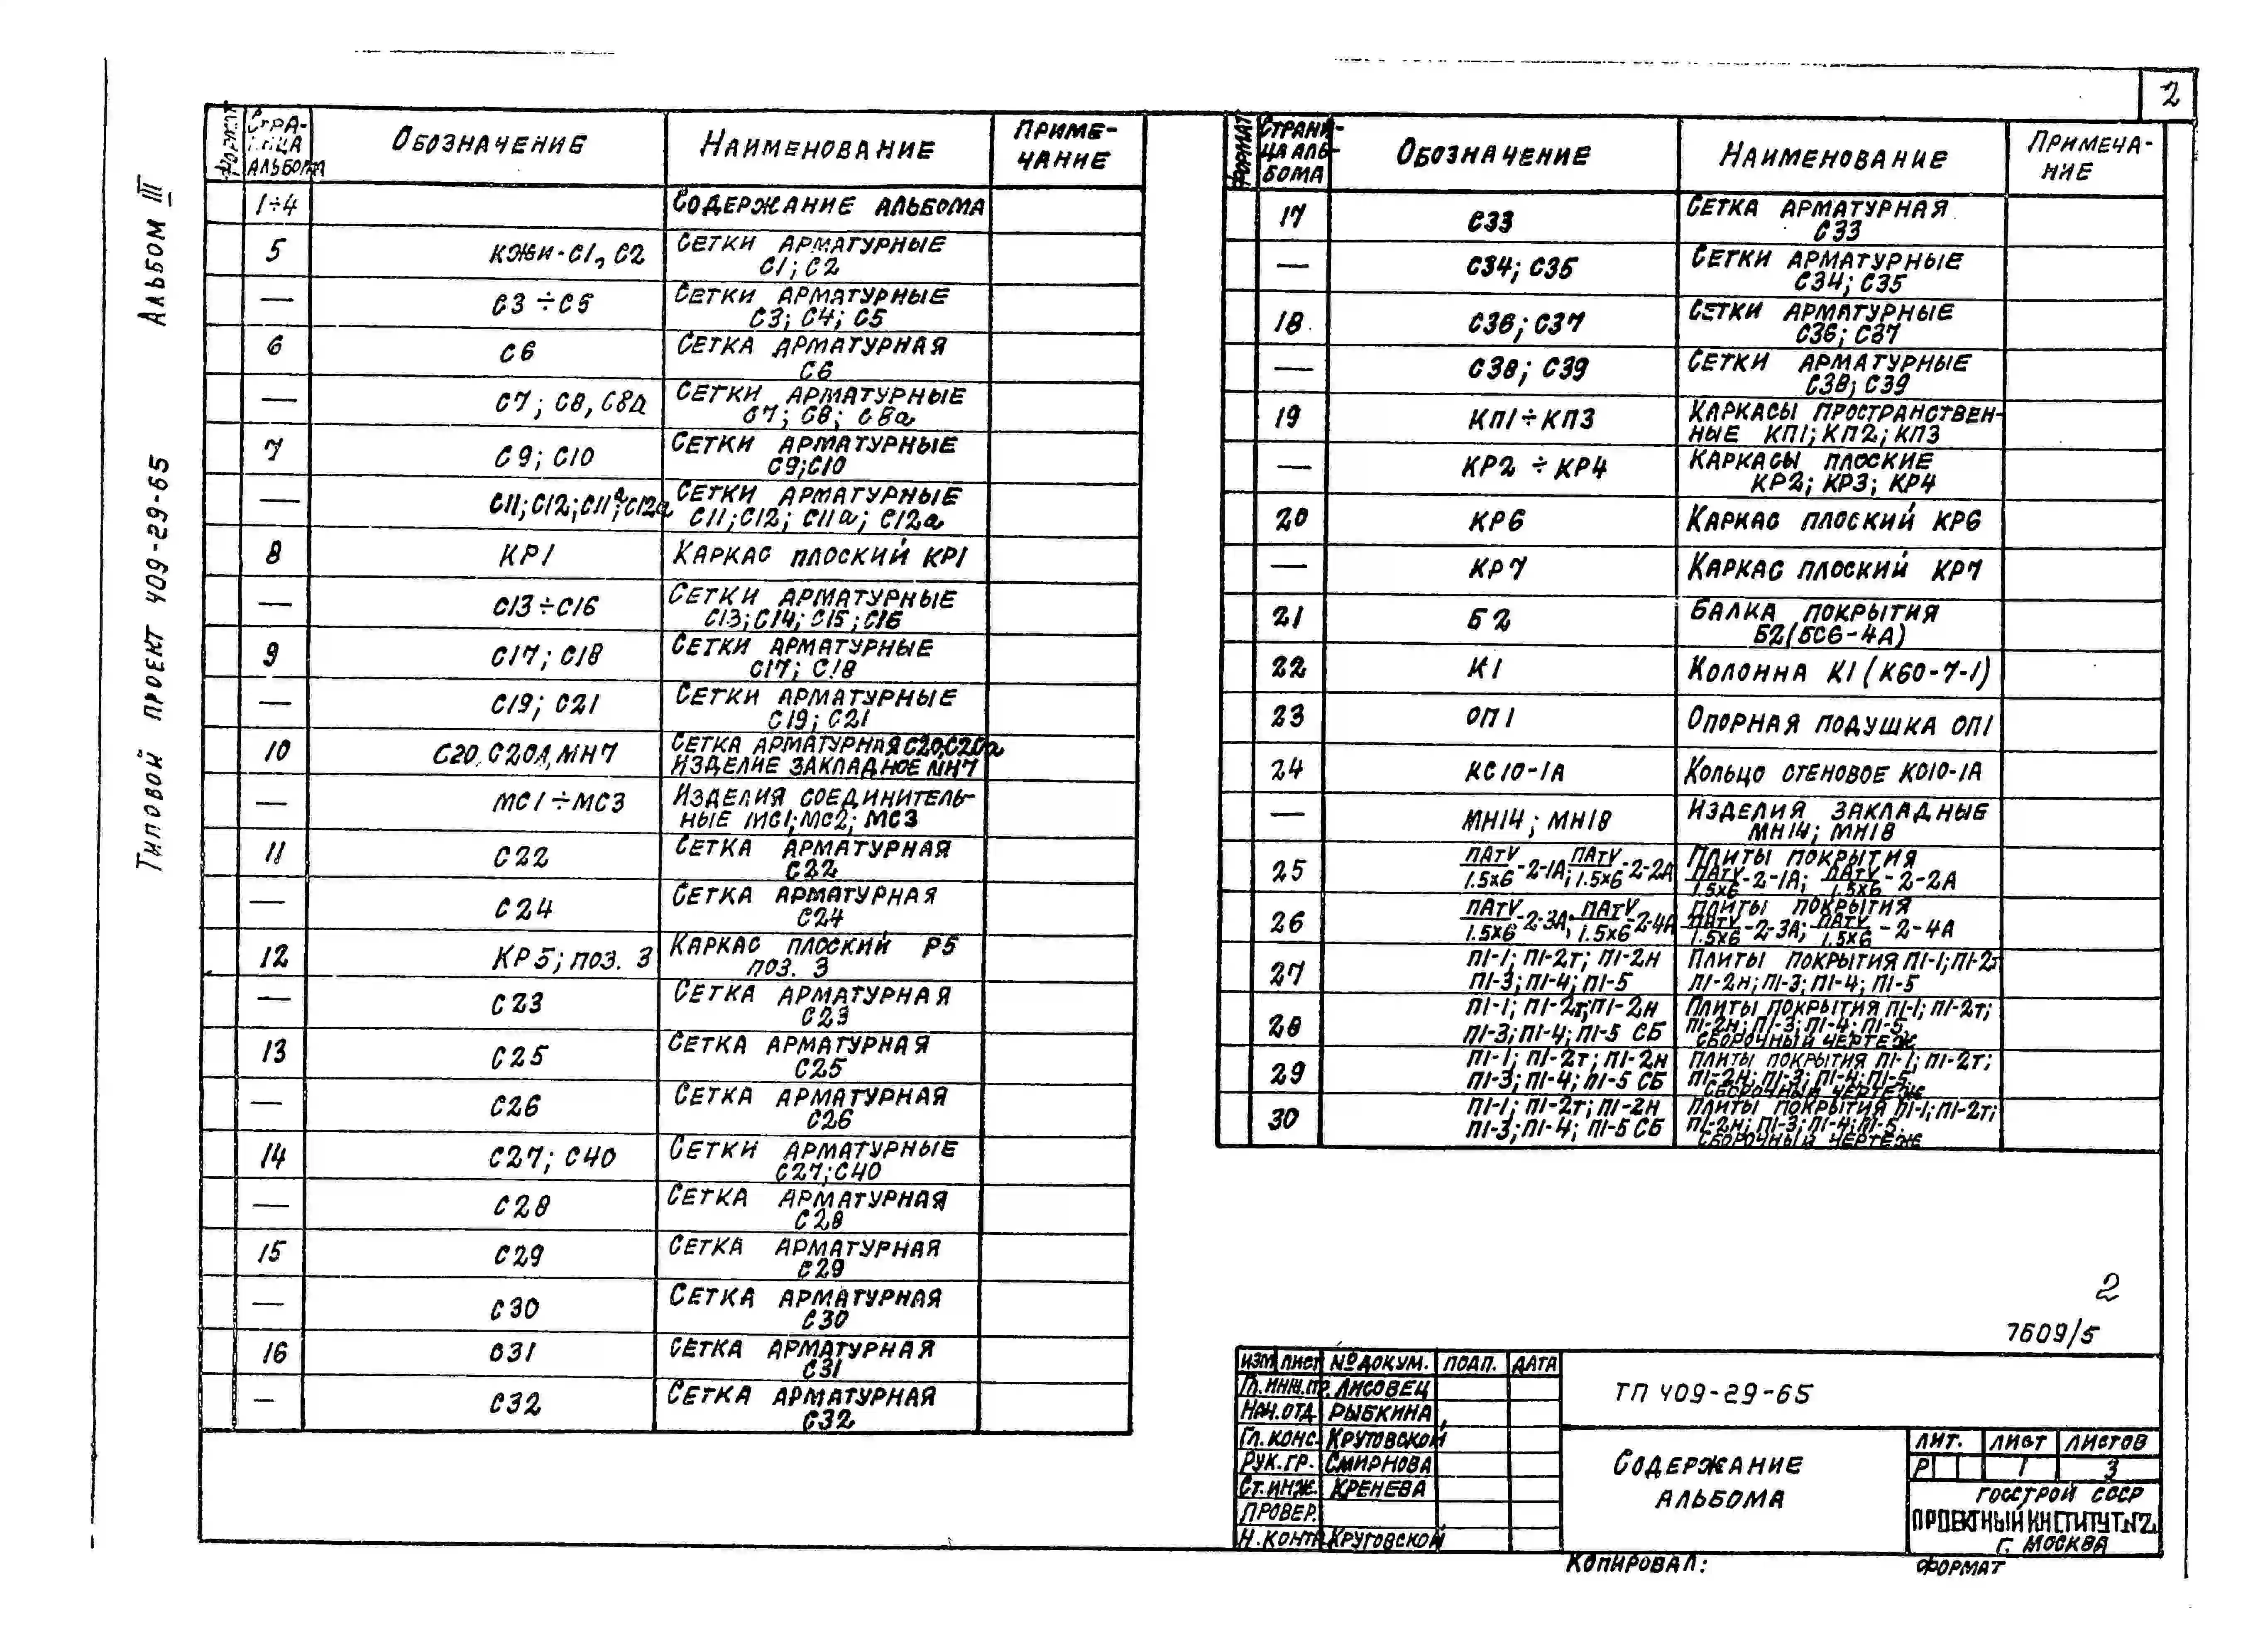 2
Альбом III
Типовой проект 409-29-65
Формат
Страница альбома
Обозначение
Наименование
Примечание
1÷4 Содержание альбома
5 КЖИ-С1, С2 Сетки арматурные
С1; С2
— С3÷С5 Сетки арматурные
С3; С4; С5
6 С6 Сетка арматурная
С6
— С7; С8, С8а Сетки арматурные
С7; С8; С8а
7 С9; С10 Сетки арматурные
С9; С10
— С11; С12; С11а; С12а Сетки арматурные
С11; С12; С11а; С12а
8 КР1 Каркас плоский КР1
— С13÷С16 Сетки арматурные
С13; С14; С15; С16
9 С17; С18 Сетки арматурные
С17; С18
— С19; С21 Сетки арматурные
С19; С21
10 С20, С20А, МН7 Сетка арматурная С20, С20а
Изделие закладное МН7
— МС1÷МС3 Изделия соединитель-
ные МС1; МС2; МС3
11 С22 Сетка арматурная
С22
— С24 Сетка арматурная
С24
12 КР5; поз. 3 Каркас плоский Р5
поз. 3
— С23 Сетка арматурная
С23
13 С25 Сетка арматурная
С25
— С26 Сетка арматурная
С26
14 С27; С40 Сетки арматурные
С27; С40
— С28 Сетка арматурная
С28
15 С29 Сетка арматурная
С29
— С30 Сетка арматурная
С30
16 С31 Сетка арматурная
С31
— С32 Сетка арматурная
С32
Формат
Страни-
ца аль-
бома
Обозначение
Наименование
Примеча-
ние
17 С33 Сетка арматурная
С33
— С34; С35 Сетки арматурные
С34; С35
18 С36; С37 Сетки арматурные
С36; С37
— С38; С39 Сетки арматурные
С38; С39
19 КП1÷КП3 Каркасы пространствен-
ные КП1; КП2; КП3
— КР2÷КР4 Каркасы плоские
КР2; КР3; КР4
20 КР6 Каркас плоский КР6
— КР7 Каркас плоский КР7
21 Б2 Балка покрытия
Б2(БС6-4А)
22 К1 Колонна К1 (К60-7-1)
23 ОП1 Опорная подушка ОП1
24 КС10-1А Кольцо стеновое КС10-1А
— МН14; МН18 Изделия закладные
МН14; МН18
25 ПАтV/1.5х6-2-1А; ПАтV/1.5х6-2-2А Плиты покрытия
ПАтV/1.5х6-2-1А; ПАтV/1.5х6-2-2А
26 ПАтV/1.5х6-2-3А; ПАтV/1.5х6-2-4А Плиты покрытия
ПАтV/1.5х6-2-3А; ПАтV/1.5х6-2-4А
27 П1-1; П1-2т; П1-2н Плиты покрытия П1-1; П1-2т
П1-3; П1-4; П1-5 П1-2н; П1-3; П1-4; П1-5
28 П1-1; П1-2т; П1-2н Плиты покрытия П1-1; П1-2т;
П1-3; П1-4; П1-5 СБ П1-2н; П1-3; П1-4; П1-5.
Сборочный чертеж
29 П1-1; П1-2т; П1-2н Плиты покрытия П1-1; П1-2т;
П1-3; П1-4; П1-5 СБ П1-2н; П1-3; П1-4; П1-5.
Сборочный чертеж
30 П1-1; П1-2т; П1-2н Плиты покрытия П1-1; П1-2т;
П1-3; П1-4; П1-5 СБ П1-2н; П1-3; П1-4; П1-5.
Сборочный чертеж
2
7609/5
Изм Лист № докум. Подп. Дата
Гл.инж.пр. Лисовец
Нач.отд. Рыбкина
Гл.конс. Крутовской
Рук.гр. Смирнова
Ст.инж. Кренева
Провер.
Н.контр. Круговской
ТП 409-29-65
Содержание
альбома
Лит. Лист Листов
Р 1 3
Госстрой СССР
Проектный институт №2
г. Москва
Копировал:
Формат